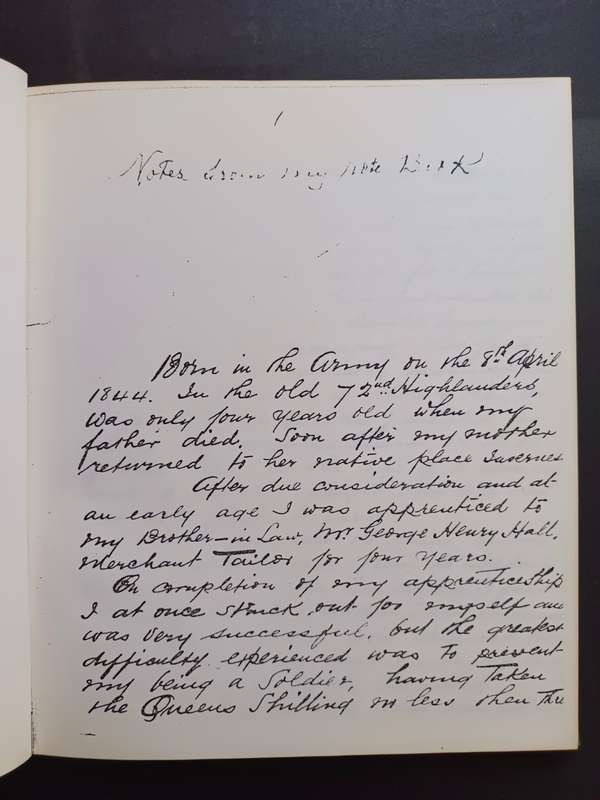 1
Notes from my note Book
Born in the Army on the 8th April
1844. In the old 72nd Highlanders,
was only four years old when my
father died. Soon after my mother
returned to her native place Invernes
After due consideration and at
an early age I was apprenticed to
my Brother-in Law, Mr. George Henry Hall,
Merchant Tailor for four years.
On completion of my apprenticeship
I at once struck out for myself and
was very successful, but the greatest
difficulty experienced was to prevent
my being a Soldier, having Taken
the Queens Shilling no less then thre